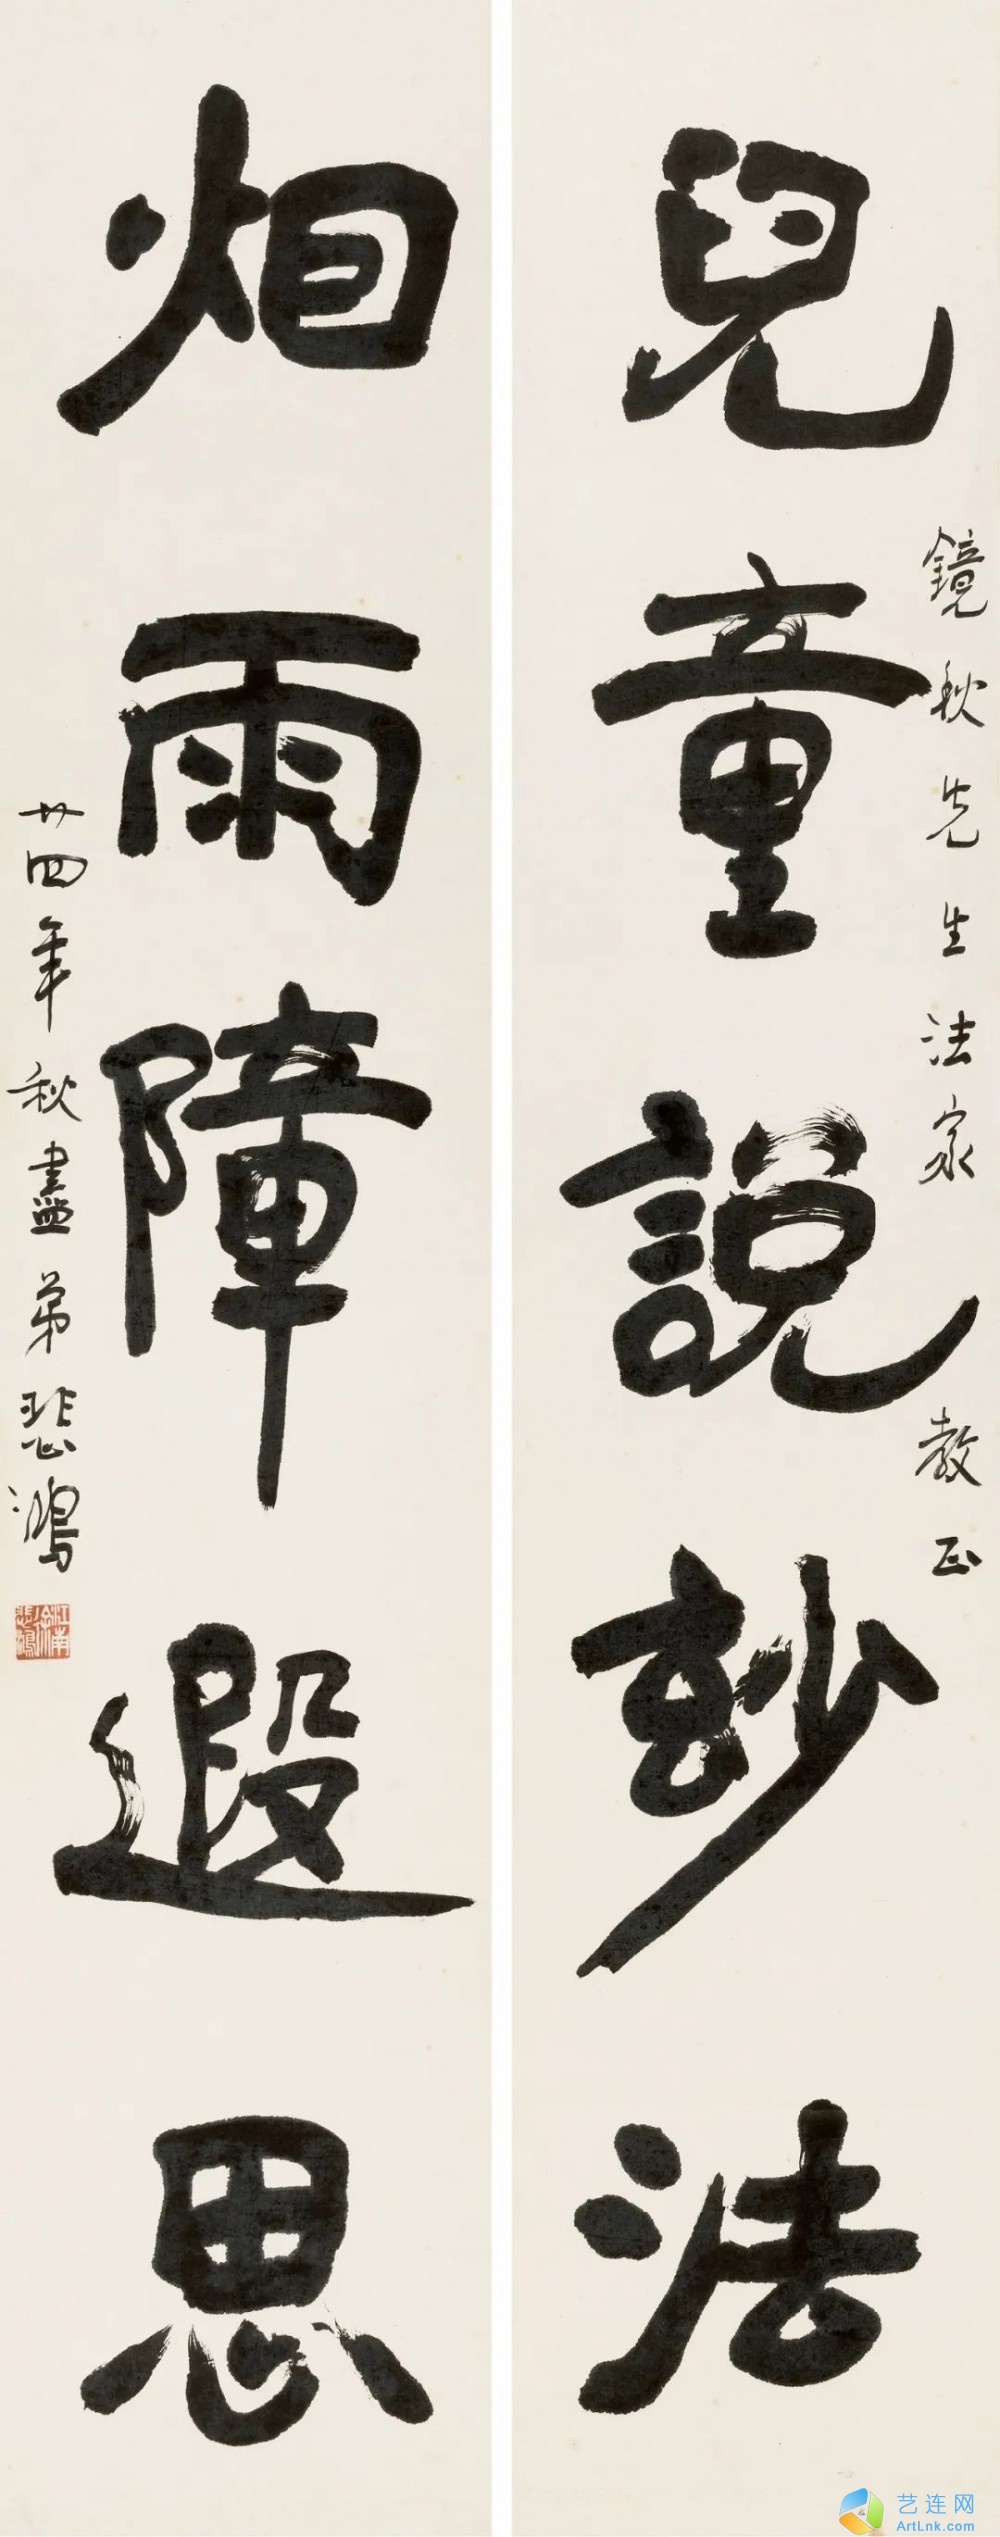 鏡秋先生法家教正
兒童說玅法
烟雨障遐思
廿四年秋盡弟悲鴻
江南徐悲鴻
艺连网
ArtLnk.com